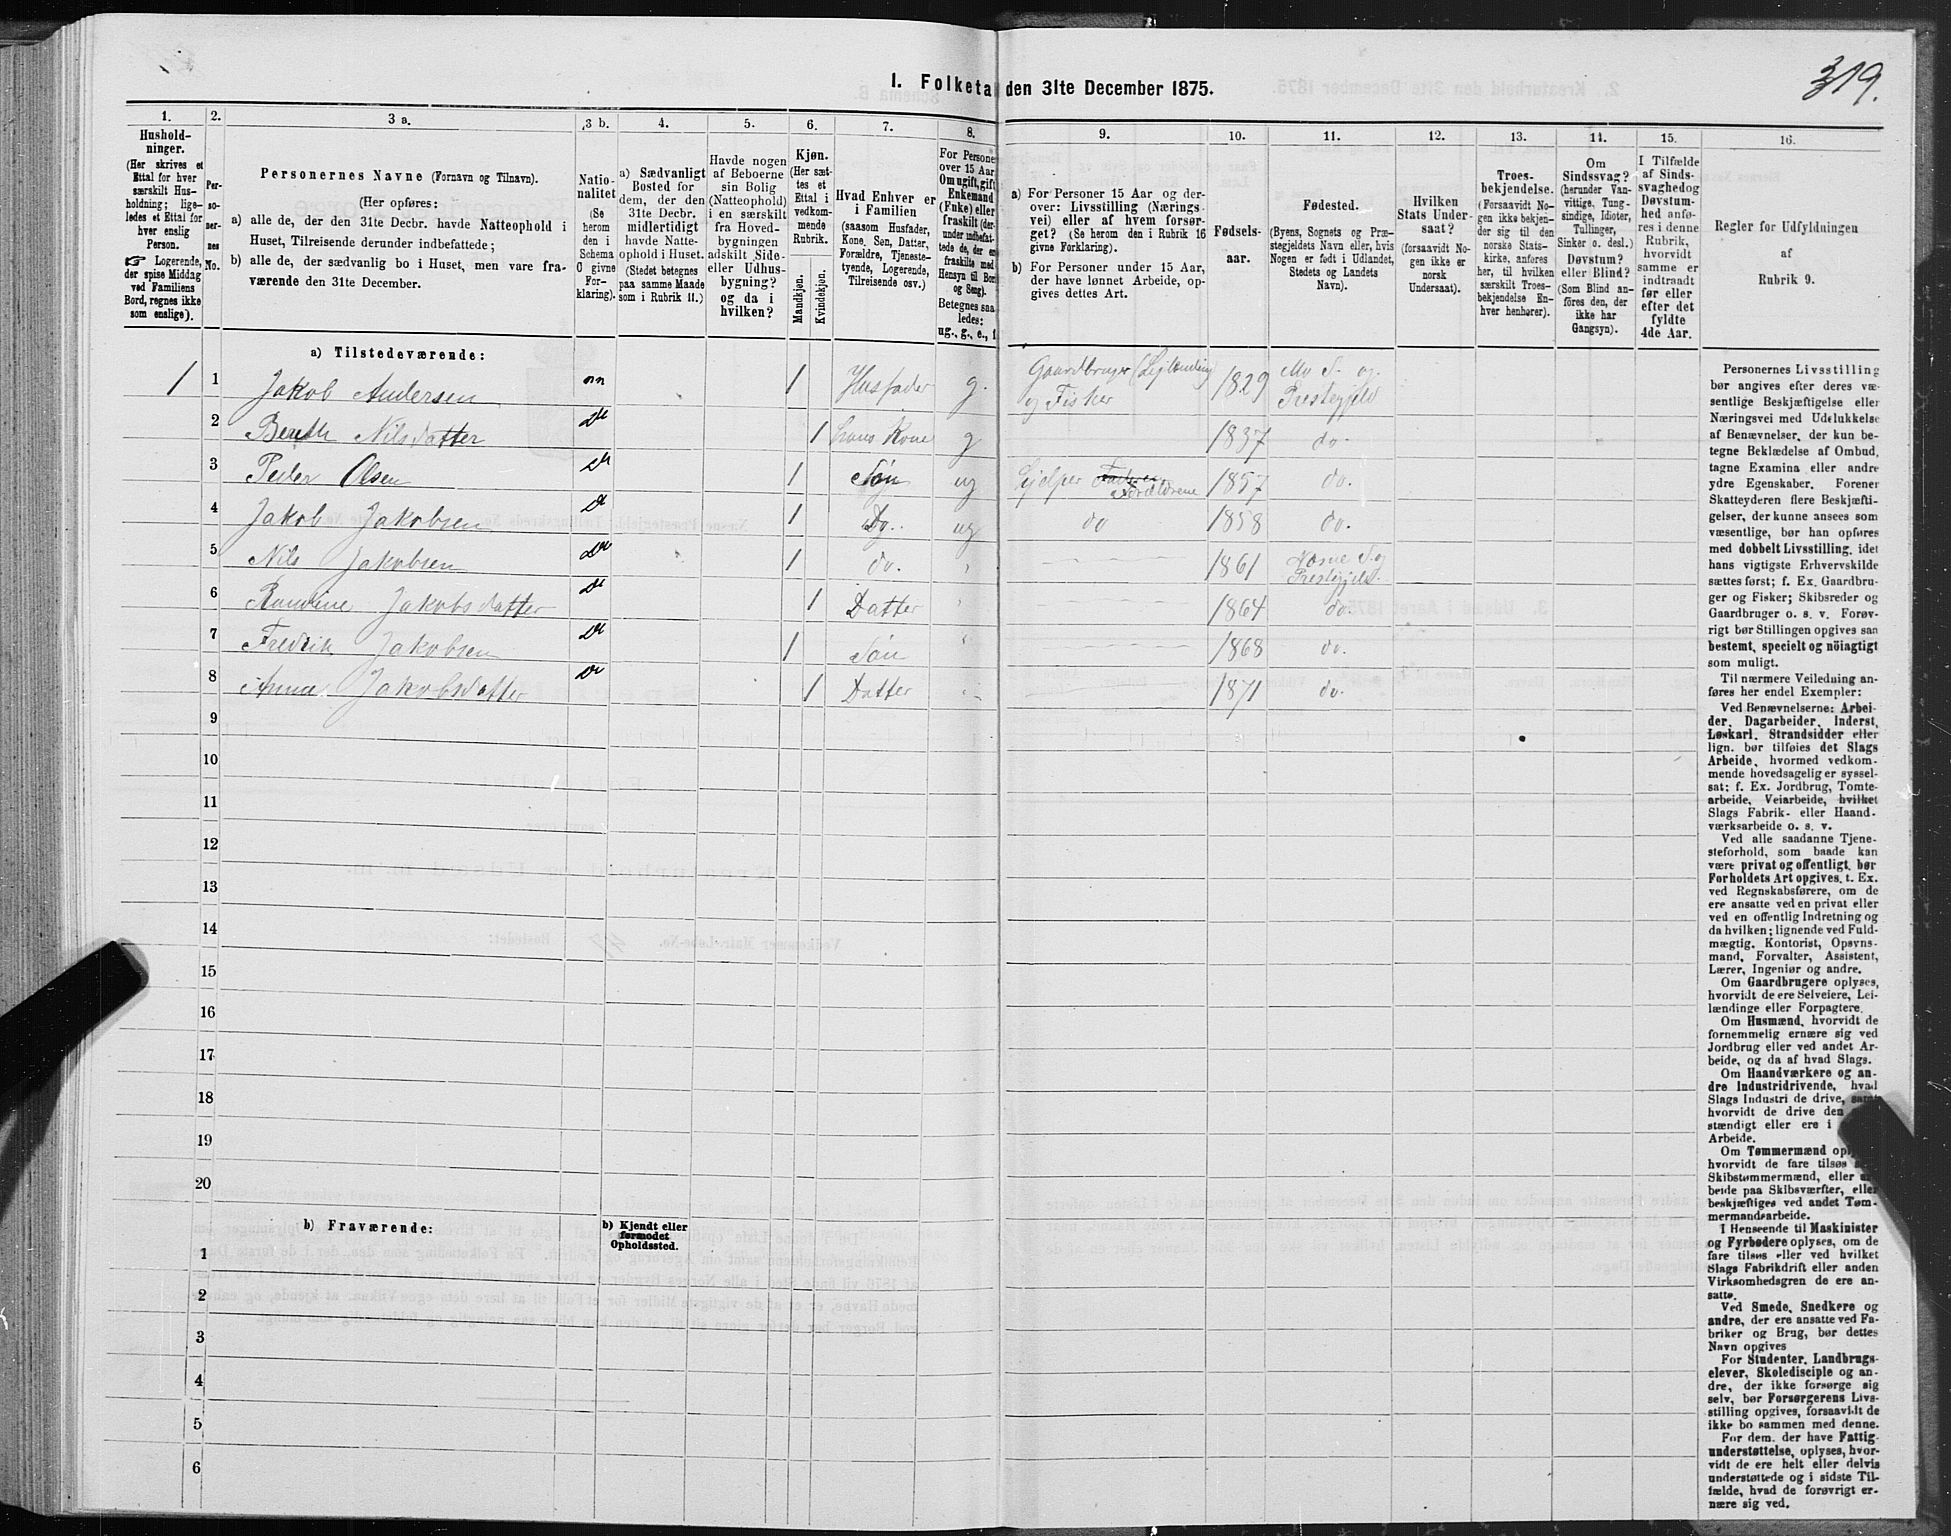 319.
I. Folketa den 31te December 1875.
1. 2. 3 a. 3 b. 4. 5. 6. 7. 8. 9. 10. 11. 12. 13. 14. 15. 16.
Hushold-
ninger.
(Her skrives et
Ettal for hver
særskilt Hus-
holdning; lige-
ledes et Ettal for
hver enslig
Person.
☞ Logerende,
der spise Middag
ved Familiens
Bord, regnes ikke
som enslige).
Per-
so-
ner-
nes
No.
Personernes Navne (Fornavn og Tilnavn).
(Her opføres:
a) alle de, der den 31te Decbr. havde Natteophold i
Huset, Tilreisende derunder indbefattede;
b) alle de, der sædvanlig bo i Huset, men vare fra-
værende den 31te December.
Natio-
nalitet
(Se
herom
den i
Schema
O givne
For-
klaring).
a) Sædvanligt
Bosted for
dem, der den
31te Decbr.
midlertidigt
havde Natte-
ophold i Huset.
(Stedet betegnes
paa samme Maade
som i Rubrik 11.)
Havde nogen
af Beboerne
sin Bolig
(Natteophold)
i en særskilt
fra Hoved-
bygningen
adskilt Side-
eller Udhus-
bygning?
og da i
hvilken?
Kjøn.
(Her sæt-
tes et
Ettal i
vedkom-
mende
Rubrik.
Mandkjøn.
Kvindekjøn.
Hvad Enhver er
i Familien
(saasom Husfader,
Kone, Søn, Datter,
Forældre, Tjeneste-
tyende, Logerende,
Tilreisende osv.)
For Persone
over 15 Aar
Om ugift, gift
Enkemand
(Enke) eller
fraskilt (der-
under indbefat-
tede de, der er
fraskilte med
Hensyn til Bor
og Seng).
Betegnes saa
ledes:
ug., g., e., f
a) For Personer 15 Aar og der-
over: Livsstilling (Nærings-
vei) eller af hvem forsør-
get? (Se herom den i Rubrik 16
givne Forklaring).
b) For Personer under 15 Aar,
der have lønnet Arbeide, op-
gives dettes Art.
Fødsels-
aar.
Fødested.
(Byens, Sognets og Præ-
stegjeldets Navn eller, hvis
Nogen er født i Udlandet,
Stedets og Landets
Navn).
Hvilken
Stats Under-
saat?
(forsaavidt No-
gen ikke er
norsk
Undersaat).
Troes-
bekjendelse.
(Forsaavidt No-
gen ikke bekjen-
der sig til den
norske Stats-
kirke, anføres
her, til hvilken
særskilt Troes-
bekjendelse En-
hver henhører).
Om
Sindssvag?
(herunder Van-
vittige, Tung-
sindige, Idioter,
Tullinger,
Sinker o. desl.)
Døvstum?
eller Blind?
(Som Blind an-
føres den, der
ikke har
Gangsyn).
I Tilfælde
af Sinds-
svaghed og
Døvstum-
hed anfø-
res i denne
Rubrik,
hvorvidt
samme er
indtraadt
før eller
efter det
fyldte
4de Aar.
Regler for Udfyldningen
af
Rubrik 9.
a) Tilstedeværende:
1 1 Jakob Andersen nn 1 Husfader g. Gaardbruger (Lejlænding og Fisker 1829 Mo S. og Prestegjeld
2 Berith Nilsdatter Do 1 hans Kone g 1837 do.
3 Peder Olsen Do 1 Søn ug hjelper Faderen Forældrene 1857 do.
4 Jakob Jakobsen Do 1 Do. ug do 1858 do.
5 Nils Jakobsen Do 1 do. 1861 Næsne S. og Prestegjeld.
6 Ranvine Jakobsdatter Do 1 Datter 1864 do.
7 Fredrik Jakobsen Do 1 Søn 1868 do.
8 Anna Jakobsdatter Do 1 Datter 1871 do.
9
10
11
12
13
14
15
16
17
18
19
20
b) Fraværende: b) Kjendt eller
formodet
Opholdssted.
1
2
3
4
5
6
Personernes Livsstilling
bør angives efter deres væ-
sentlige Beskjæftigelse eller
Næringsvei med Udelukkelse
af Benævnelser, der kun be-
tegne Beklædelse af Ombud,
tagne Examina eller andre
ydre Egenskaber. Forener
Skatteyderen flere Beskjæfti-
gelser, der kunne ansees som
væsentlige, bør han opføres
med dobbelt Livsstilling, idet
hans vigtigste Erhvervskilde
sættes først; f. Ex. Gaardbru-
ger og Fisker; Skibsreder og
Gaardbruger o. s. v. Forøv-
rigt bør Stillingen opgives saa
bestemt, specielt og nöiagtigt
som muligt.
Til nærmere Veiledning an-
føres her endel Exempler:
Ved Benævnelserne: Arbei-
der, Dagarbeider, Inderst,
Løskarl, Strandsidder eller
lign. bør tilføies det Slags
Arbeide, hvormed vedkom-
mende hovedsagelig er syssel-
sat; f. Ex. Jordbrug, Tomte-
arbeide, Veiarbeide, hvilket
Slags Fabrik- eller Haand-
værksarbeide o. s. v.
Ved alle saadanne Tjene-
steforhold, som baade kan
være privat og offentligt, bør
Forholdets Art opgives, f. Ex.
ved Regnskabsførere, om de
ere ansatte ved en privat eller
ved en offentlig Indretning og
da hvilken; lignende ved Fuld-
mægtig, Kontorist, Opsyns-
mand, Forvalter, Assistent,
Lærer, Ingeniør og andre.
Om Gaardbrugere oplyses,
hvorvidt de ere Selveiere, Lei-
lændinge eller Forpagtere.
Om Husmænd, hvorvidt de
fornemmelig ernære sig ved
Jordbrug eller ved andet Ar-
beide, og da af hvad Slags.
Om Haandværkere og an-
dre Industridrivende, hvad
Slags Industri de drive, samt
hvorvidt de drive den
stændigt eller ere i
Arbeide.
Om Tømmermænd
hvorvidt de fare tilsøs
Skibstømmermænd, eller
beide paa Skibsværfter, eller
beskjæftiges ved andet Tøm-
mermandsarbeide.
I Henseende til Maskinister
og Fyrbødere oplyses, om de
fare tilsøs eller ved hvilket
Slags Fabrikdrift eller anden
Virksomhedsgren de ere an-
satte.
Ved Smede, Snedkere og
andre, der ere ansatte ved Fa-
briker og Brug, bør dettes
Navn opgives
For Studenter, Landbrugs-
elever, Skoledisciple og an-
dre, der ikke forsørge sig
selv, bør Forsørgerens Livs-
stilling opgives, forsaavidt de
ikke bo sammen med denne.
For dem, der have Fattig-
understøttelse, oplyses, hvor-
vidt de ere helt eller delvis
understøttede og i sidste Til-
fælde, hvad de forøvrigt er-
nære sig ved.